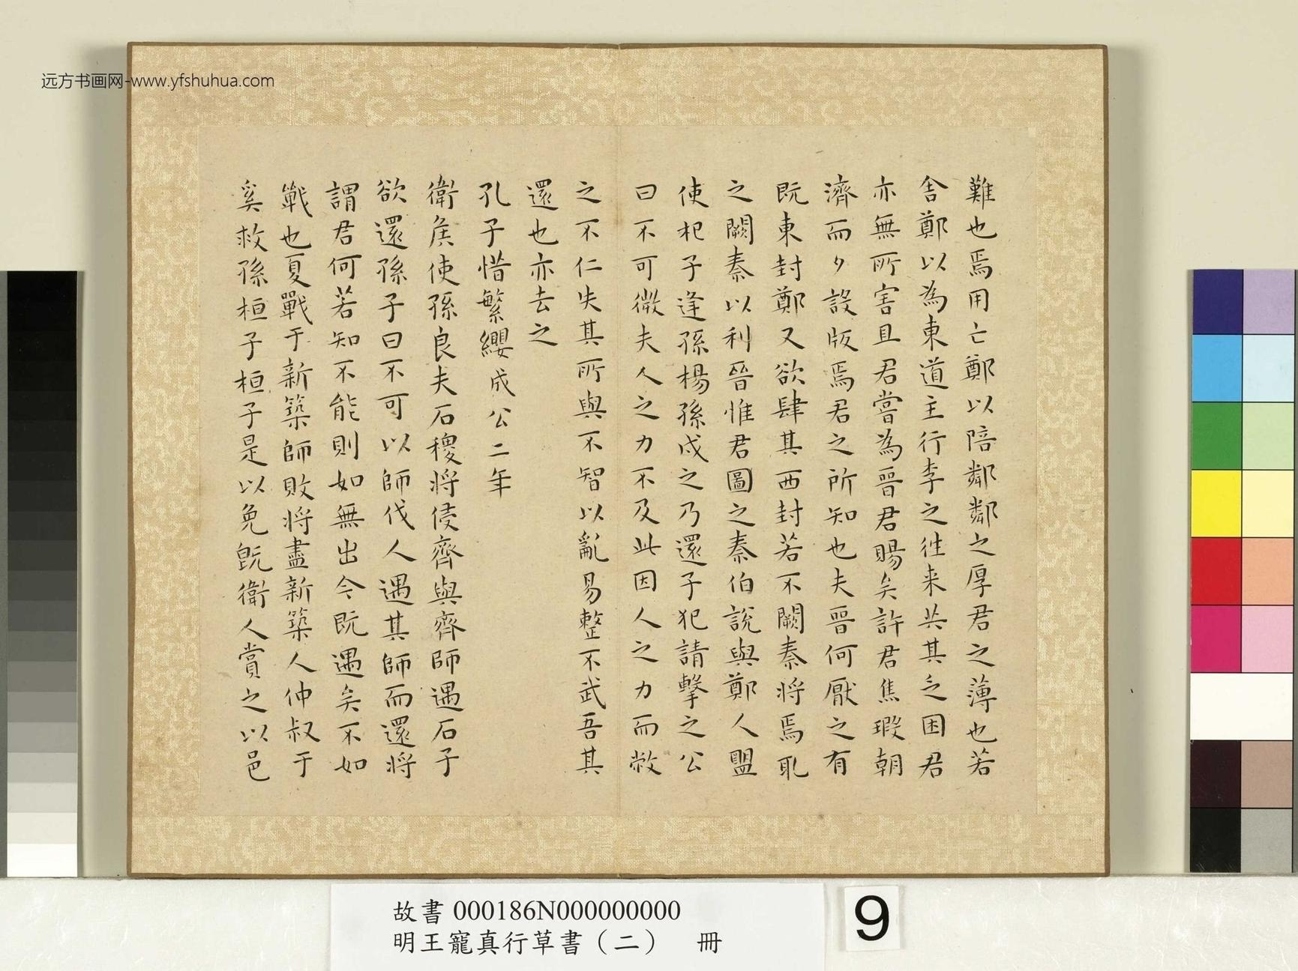 远方书画网-www.yfshuhua.com
難也焉用亡鄭以陪鄰鄰之厚君之薄也若
舍鄭以為東道主行李之往来共其乏困君
亦無所害且君嘗為晉君賜矣許君焦瑕朝
濟而夕設版焉君之所知也夫晉何厭之有
既東封鄭又欲肆其西封若不闕秦将焉取
之闕秦以利晉惟君圖之秦伯說與鄭人盟
使杞子逢孫楊孫戍之乃還子犯請擊之公
曰不可微夫人之力不及此因人之力而敝
之不仁失其所與不智以亂易整不武吾其
還也亦去之
孔子惜繁纓成公二年
衛侯使孫良夫石稷将侵齊與齊師遇石子
欲還孫子曰不可以師伐人遇其師而還将
謂君何若知不能則如無出今既遇矣不如
戰也夏戰于新築師敗将盡新築人仲叔于
奚救孫桓子桓子是以免既衛人賞之以邑
故書 000186N000000000
明王寵真行草書（二） 冊
9